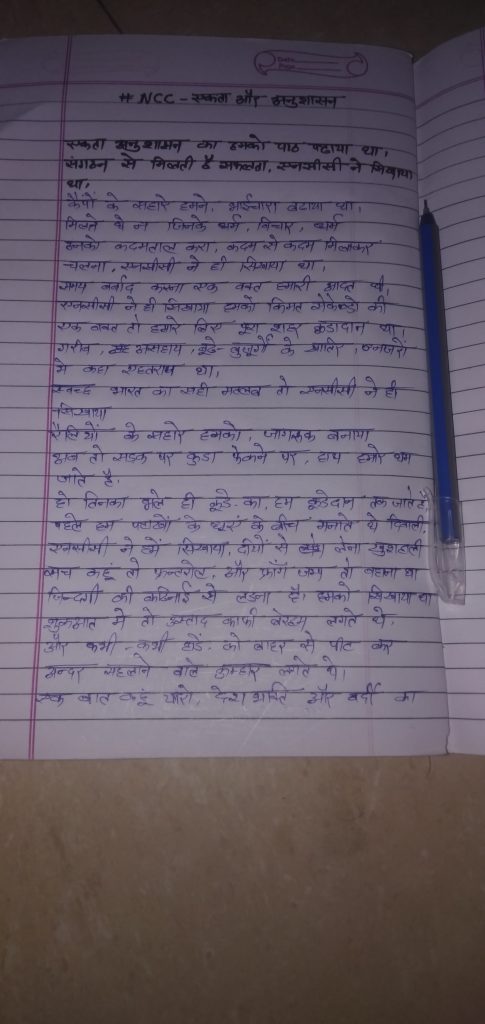 # NCC - एकता और अनुशासन
एकता अनुशासन का हमको पाठ पढाया था,
संगठन से मिलती है सफलता, एनसीसी ने सिखाया
था,
कैंपों के सहारे हमने, भाईचारा बढाया था,
मिलते थे न जिनके धर्म, विचार, धर्म
उनको कदमताल करा, कदम से कदम मिलाकर
चलना, एनसीसी ने ही सिखाया था,
समय बर्बाद करना एक वक्त हमारी आदत थी,
एनसीसी ने ही सिखाया हमको किमत सेकेन्डो की
एक वक्त तो हमारे लिए पूरा शहर कुडादान था,
गरीब, असहाय, बूढे-बुजुर्गो के खातिर, नजरों
मे कहा एहतराम था,
स्वच्छ भारत का सही मतलब तो एनसीसी ने ही
सिखाया
रैलियों के सहारे हमको, जागरूक बनाया
अब तो सडक पर कुडा फेकने पर, हाथ हमारे थम
जाते है.
हो तिनका भले ही कूडे का, हम कूडेदान तक जाते है,
पहले हम पटाखों के धूएं के बीच मनाते थे दिवाली,
एनसीसी ने हमें सिखाया, दीयों से लेना खुशहाली
सच कहूं तो फ्रन्टरोल, और फ्रॉग जम्प तो बहाना था
जिन्दगी की कठिनाई से लडना है, हमको सिखाया था
शुरुआत मे तो उस्ताद काफी बेरहम लगते थे.
और कभी-कभी घडे को बाहर से पीट कर
अन्दर सहलाने वाले कुम्हार लगते थे।
एक बात कहूं यारो, देश भक्ति और वर्दी का